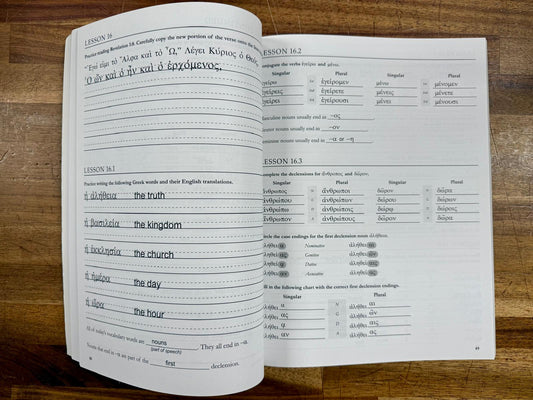 LESSON 16
Practice reading Revelation 1:8. Carefully copy the new portion of the verse onto the
"Ἐγώ εἰμι τὸ Ἄλφα καὶ τὸ Ὦ," Λέγει Κύριος ὁ Θεός,
Ὁ ὢν καὶ ὁ ἦν καὶ ὁ ἐρχόμενος,
LESSON 16.1
Practice writing the following Greek words and their English translations.
ἡ ἀλήθεια the truth
ἡ βασιλεία the kingdom
ἡ ἐκκλησία the church
ἡ ἡμέρα the day
ἡ ὥρα the hour
All of today's vocabulary words are nouns. They all end in –α.
(part of speech)
Nouns the end in –α are part of the first declension.
LESSON 16.2
onjugate the verbs ἐγείρω and μένω.
Singular Plural Singular Plural
ἐγείρω 1st ἐγείρομεν μένω 1st μένομεν
ἐγείρεις 2nd ἐγείρετε μένεις 2nd μένετε
ἐγείρει 3rd ἐγείρουσι μένει 3rd μένουσι
asculine nouns usually end in –ος
euter nouns usually end in –ον
eminine nouns usually end in –α or –η
LESSON 16.3
omplete the declensions for ἄνθρωπος and δῶρον.
Singular Plural Singular Plural
ἄνθρωπος N ἄνθρωποι δῶρον N δῶρα
ἀνθρώπου G ἀνθρώπων δώρου G δώρων
ἀνθρώπῳ D ἀνθρώποις δώρῳ D δώροις
ἄνθρωπον A ἀνθρώπους δῶρον A δῶρα
ircle the case endings for the first declension noun ἀλήθεια.
ἀλήθεια Nominative ἀλήθειαι
ἀληθείας Genitive ἀληθειῶν
ἀληθείᾳ Dative ἀληθείαις
ἀλήθειαν Accusative ἀληθείας
ill in the following chart with the correct first declension endings.
Singular Plural
ἀλήθει α N ἀλήθει αι
ἀληθεί ας G ἀληθει ῶν
ἀληθεί ᾳ D ἀληθεί αις
ἀλήθει αν A ἀληθεί ας